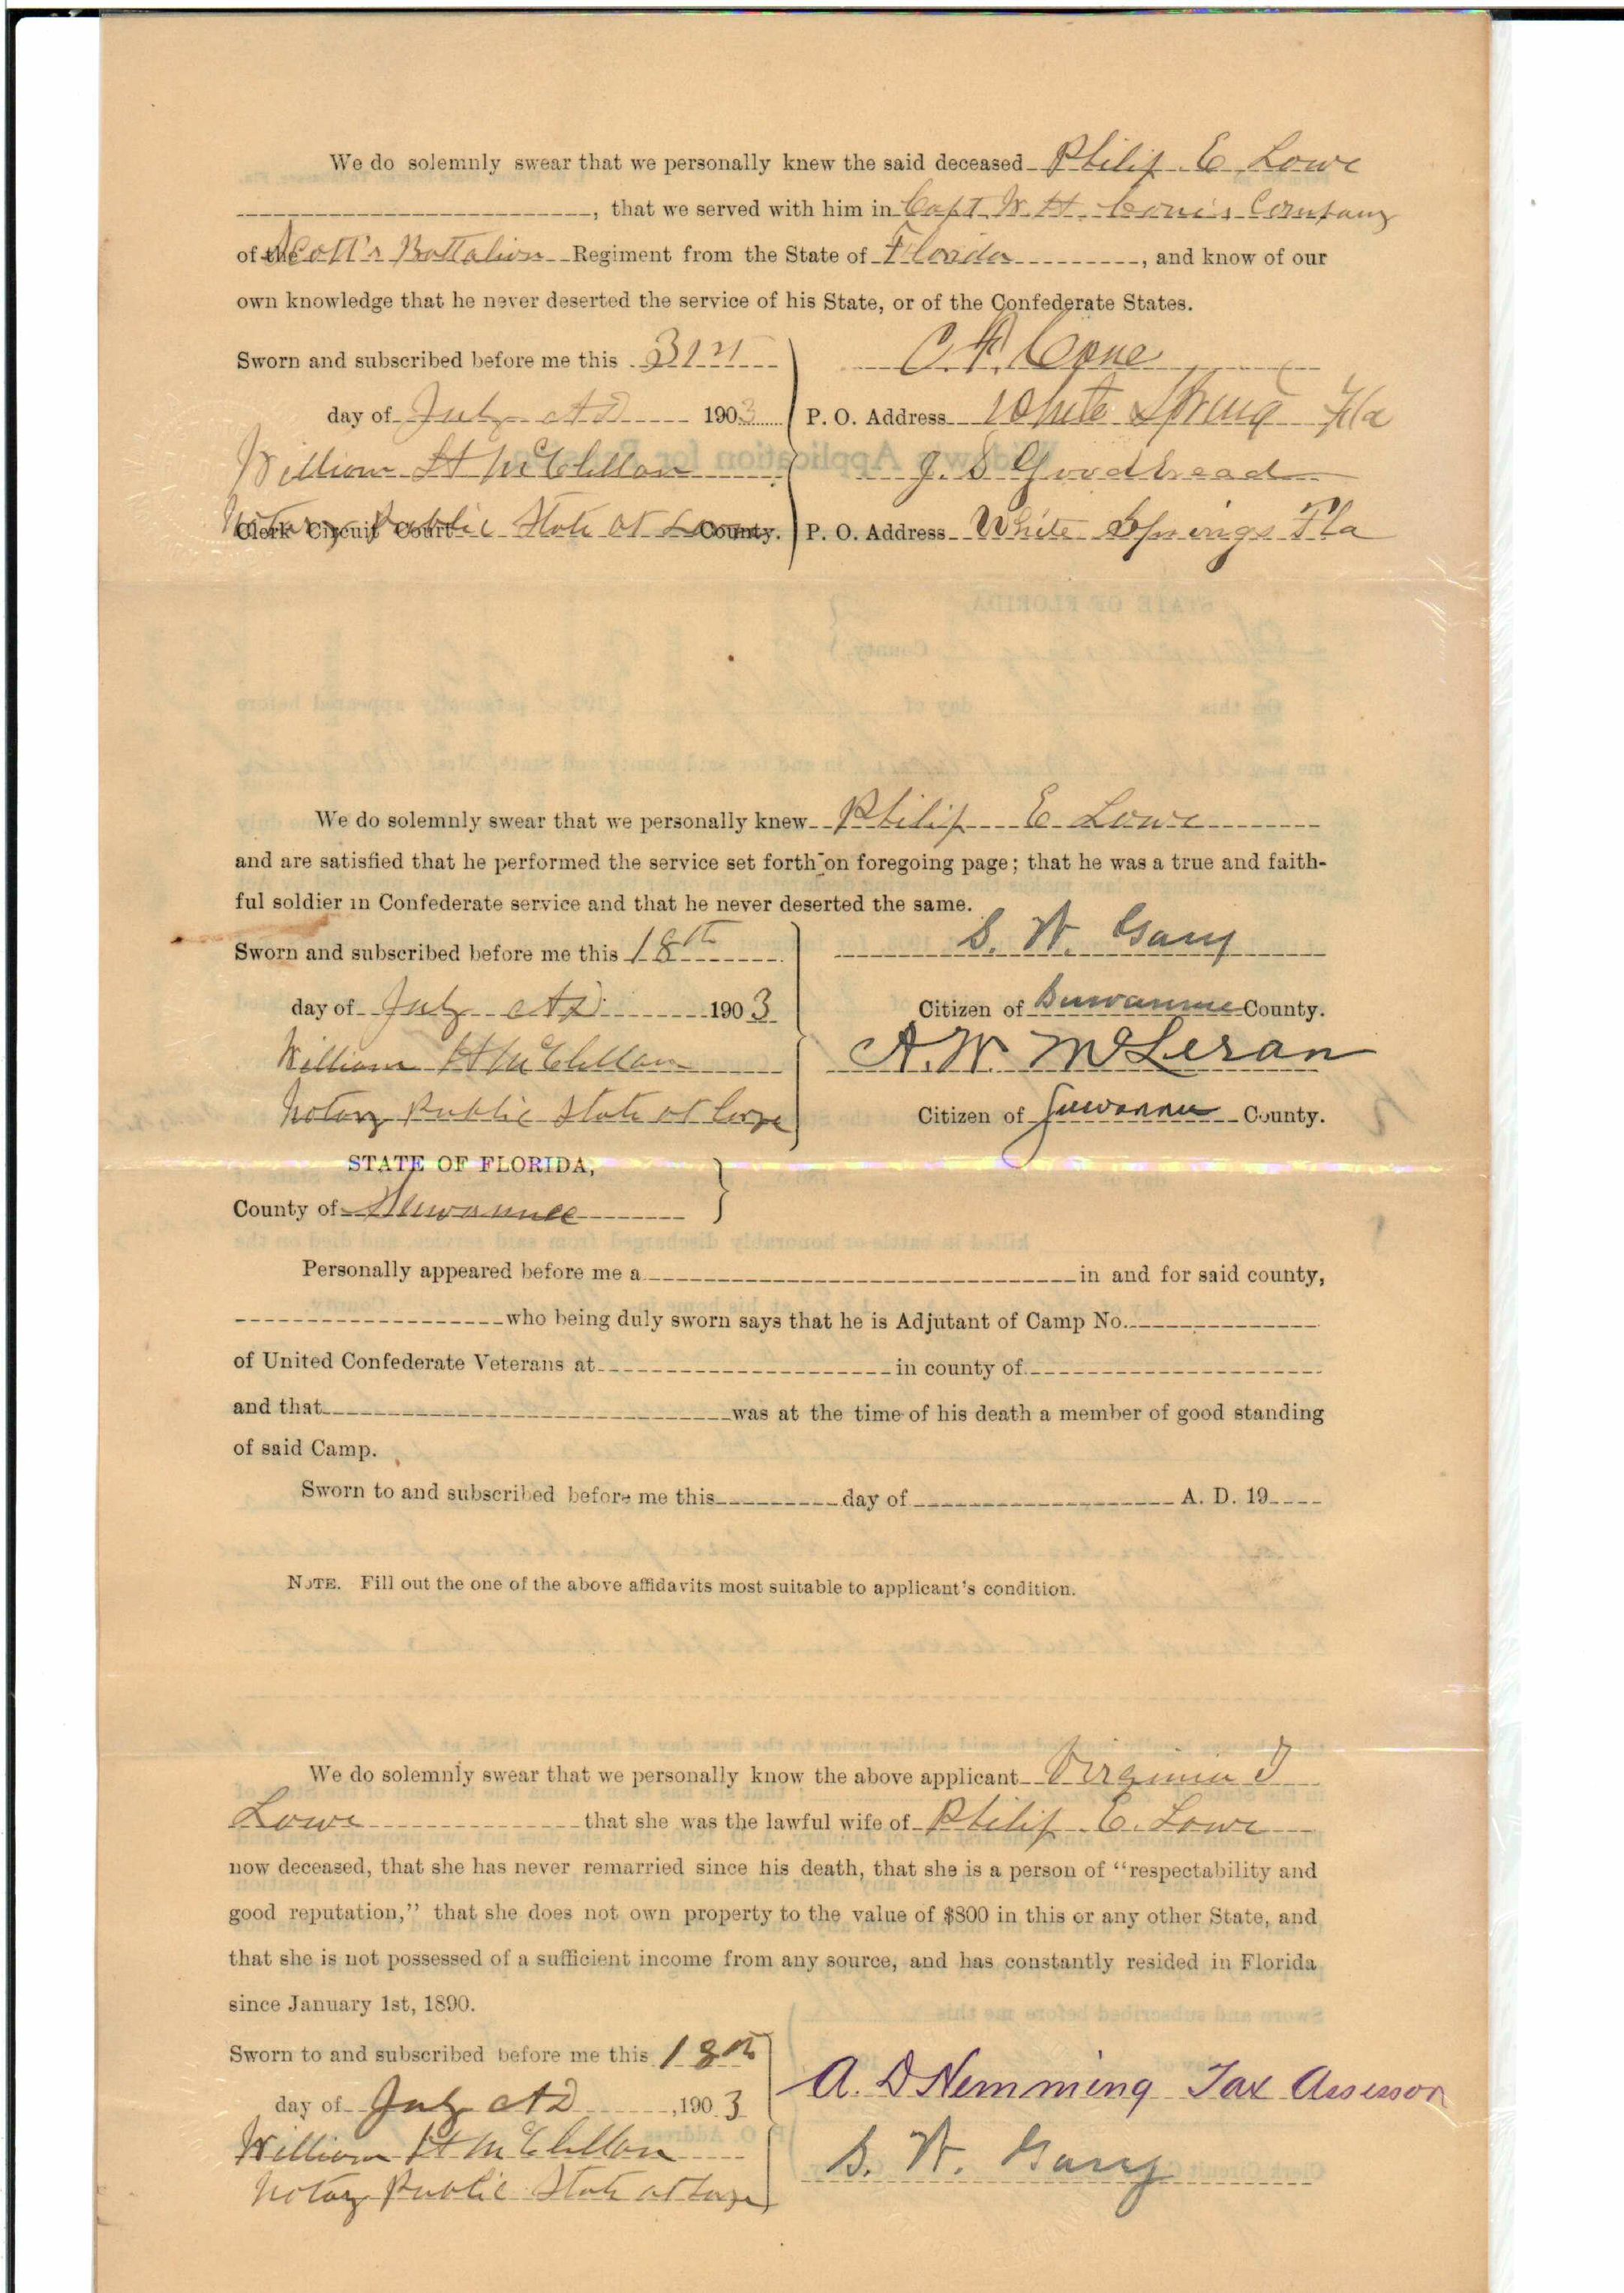 We do solemnly swear that we personally knew the said deceased Philip E Lowe
, that we served with him in Capt W. H. Cone's Company
of the Scott's Battalion Regiment from the State of Florida, and know of our
own knowledge that he never deserted the service of his State, or of the Confederate States.
Sworn and subscribed before me this 31st
C. F. Cone
day of July AD 1903
P. O. Address White Spring Fla
William H McClellan
J. S Goodbread
Clerk Circuit Court County.
Notary Public State at Large
P. O. Address White Springs Fla
We do solemnly swear that we personally knew Philip E Lowe
and are satisfied that he performed the service set forth on foregoing page; that he was a true and faith-
ful soldier in Confederate service and that he never deserted the same.
Sworn and subscribed before me this 18th
S. W. Gary
day of July AD 1903
Citizen of Suwannee County.
William H McClellan
A. W. McLeran
Notary Public State at Large
Citizen of Suwannee County.
STATE OF FLORIDA,
County of Suwannee
Personally appeared before me a in and for said county,
who being duly sworn says that he is Adjutant of Camp No.
of United Confederate Veterans at in county of
and that was at the time of his death a member of good standing
of said Camp.
Sworn to and subscribed before me this day of A. D. 19
NOTE. Fill out the one of the above affidavits most suitable to applicant's condition.
We do solemnly swear that we personally know the above applicant Virginia I
Lowe that she was the lawful wife of Philip E. Lowe
now deceased, that she has never remarried since his death, that she is a person of "respectability and
good reputation," that she does not own property to the value of $800 in this or any other State, and
that she is not possessed of a sufficient income from any source, and has constantly resided in Florida
since January 1st, 1890.
Sworn to and subscribed before me this 18th
A. D Hemming Tax Assessor
day of July AD, 1903
William H McClellan
S. W. Gary
Notary Public State at Large